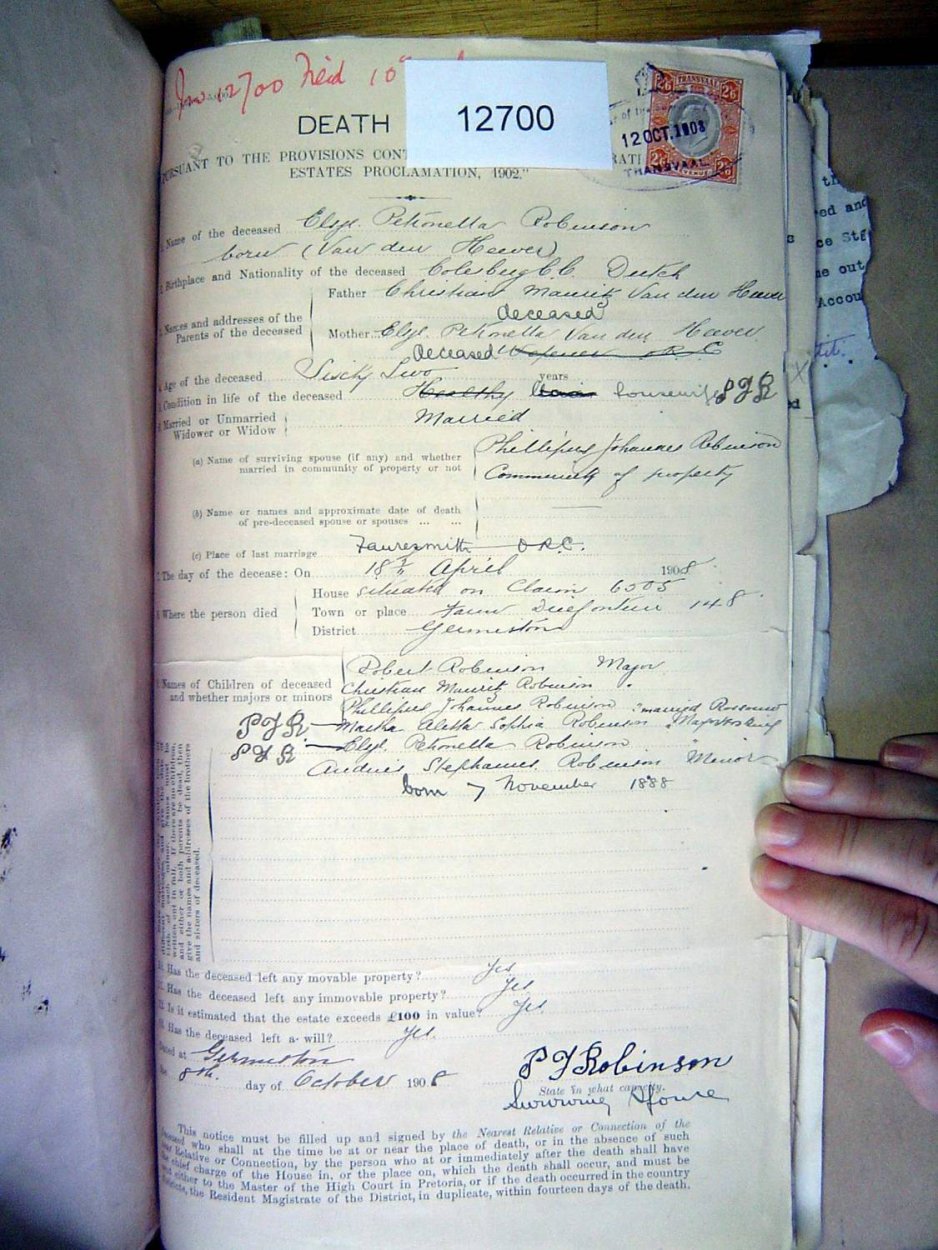 No 12700 Filed 10
12700
TRANSVAAL
2/6 2/6
12 OCT. 1908
TRANSVAAL
2/6 REVENUE 2/6
DEATH
PURSUANT TO THE PROVISIONS
ESTATES PROCLAMATION, 1902."
Name of the deceased Elsje Petronella Robinson
born (Van den Heever)
Birthplace and Nationality of the deceased Colesburg C.C. Dutch
Father Christian Mauritz Van den Heever
deceased
Names and addresses of the
Parents of the deceased
Mother Elsje Petronella Van den Heever
deceased Wepener O R C
Age of the deceased Sixty Two years
Condition in life of the deceased Healthy housewife PJR
Married or Unmarried
Widower or Widow
Married
(a) Name of surviving spouse (if any) and whether
married in community of property or not
Phillipus Johannes Robinson
Community of property
(b) Name or names and approximate date of death
of pre-deceased spouse or spouses ... ...
(c) Place of last marriage Fauresmith O.R.C.
The day of the decease: On 18th April 1908.
Where the person died
House situated on Claim 6505
Town or place Farm Driefontein 148
District Germiston
Names of Children of deceased
and whether majors or minors
Robert Robinson Major
Christian Mauritz Robinson
Phillipus Johannes Robinson married
PJR Martha Aletta Sophia Robinson
PJR Elsje Petronella Robinson
Andries Stephanus Robinson Minor
born 7 November 1888
written out in full. If there are no children,
and either or both parents be dead, then
give the names and addresses of the brothers
and sisters of deceased.
Has the deceased left any movable property? Yes
Has the deceased left any immovable property? Yes
Is it estimated that the estate exceeds £100 in value? Yes
Has the deceased left a will? Yes.
Dated at Germiston
the 8th. day of October 1908
P J Robinson
State in what capacity.
Surviving Spouse
This notice must be filled up and signed by the Nearest Relative or Connection of the
deceased who shall at the time be at or near the place of death, or in the absence of such
near Relative or Connection, by the person who at or immediately after the death shall have
the chief charge of the House in, or the place on, which the death shall occur, and must be
sent either to the Master of the High Court in Pretoria, or if the death occurred in the country
Districts, the Resident Magistrate of the District, in duplicate, within fourteen days of the death.